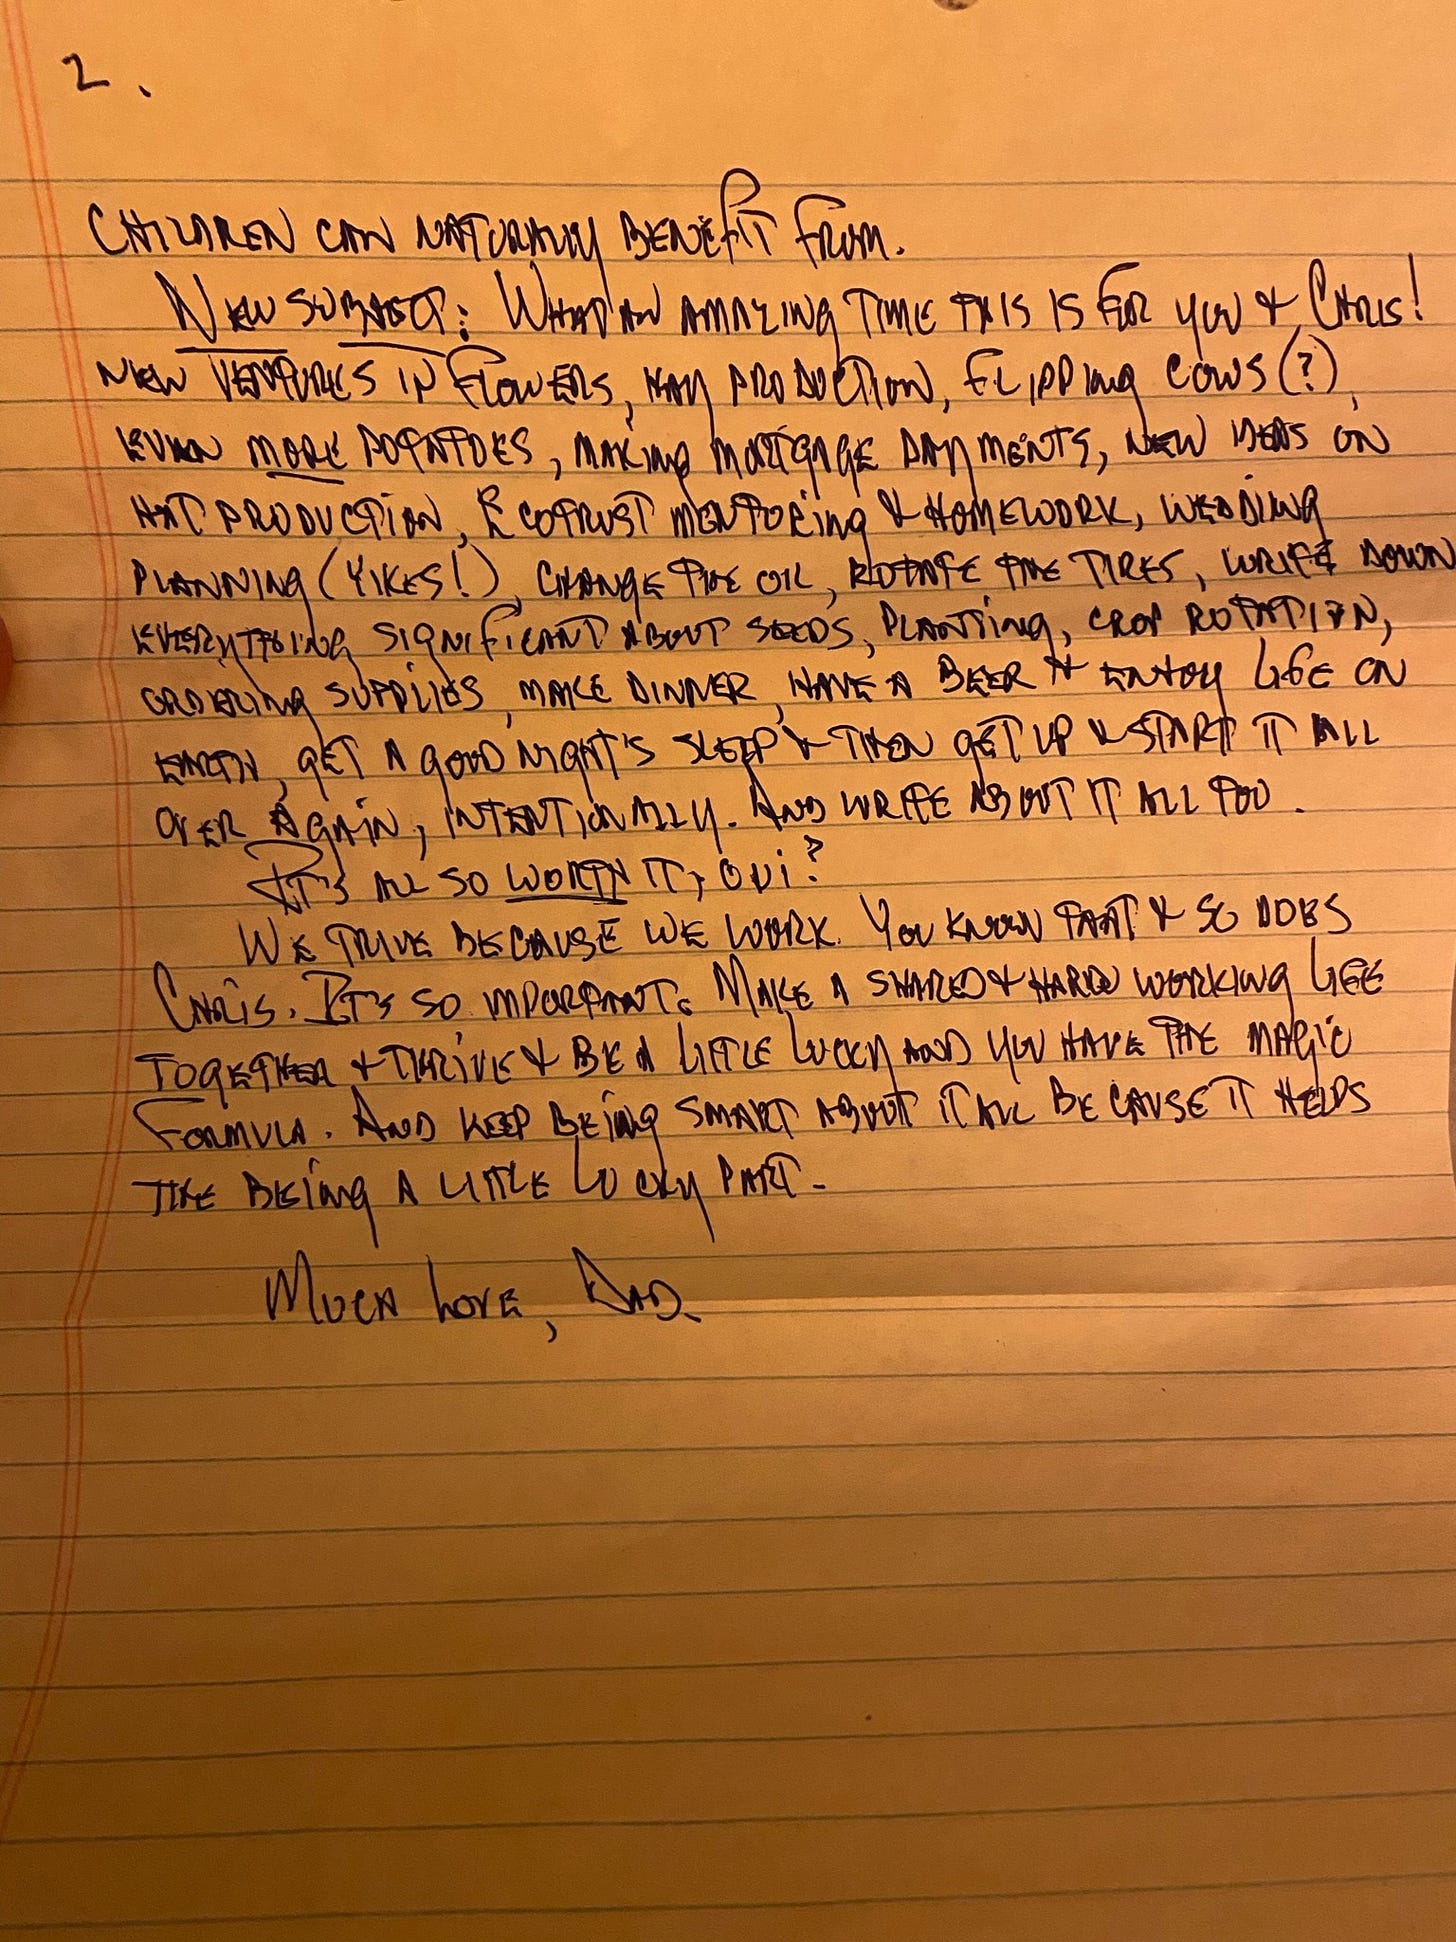 2.
CHILDREN CAN NATURALLY BENEFIT FROM.
NEW SUBJECT: WHAT AN AMAZING TIME THIS IS FOR YOU & CHRIS!
NEW VENTURES IN FLOWERS, HAY PRODUCTION, FLIPPING COWS (?),
EVEN MORE POTATOES, MAKING MORTGAGE PAYMENTS, NEW IDEAS ON
HAT PRODUCTION, ECOTRUST MENTORING & HOMEWORK, WEDDING
PLANNING (YIKES!), CHANGE THE OIL, ROTATE THE TIRES, WRITE DOWN
EVERYTHING SIGNIFICANT ABOUT SEEDS, PLANTING, CROP ROTATION,
ORDERING SUPPLIES, MAKE DINNER, HAVE A BEER & ENJOY LIFE ON
EARTH, GET A GOOD NIGHT'S SLEEP & THEN GET UP & START IT ALL
OVER AGAIN, INTENTIONALLY. AND WRITE ABOUT IT ALL TOO.
IT'S ALL SO WORTH IT, OUI?
WE THRIVE BECAUSE WE WORK. YOU KNOW THAT & SO DOES
CHRIS. IT'S SO IMPORTANT. MAKE A SHARED & HARD WORKING LIFE
TOGETHER & THRIVE & BE A LITTLE LUCKY AND YOU HAVE THE MAGIC
FORMULA. AND KEEP BEING SMART ABOUT IT ALL BECAUSE IT HELPS
THE BEING A LITTLE LUCKY PART.
MUCH LOVE, DAD.